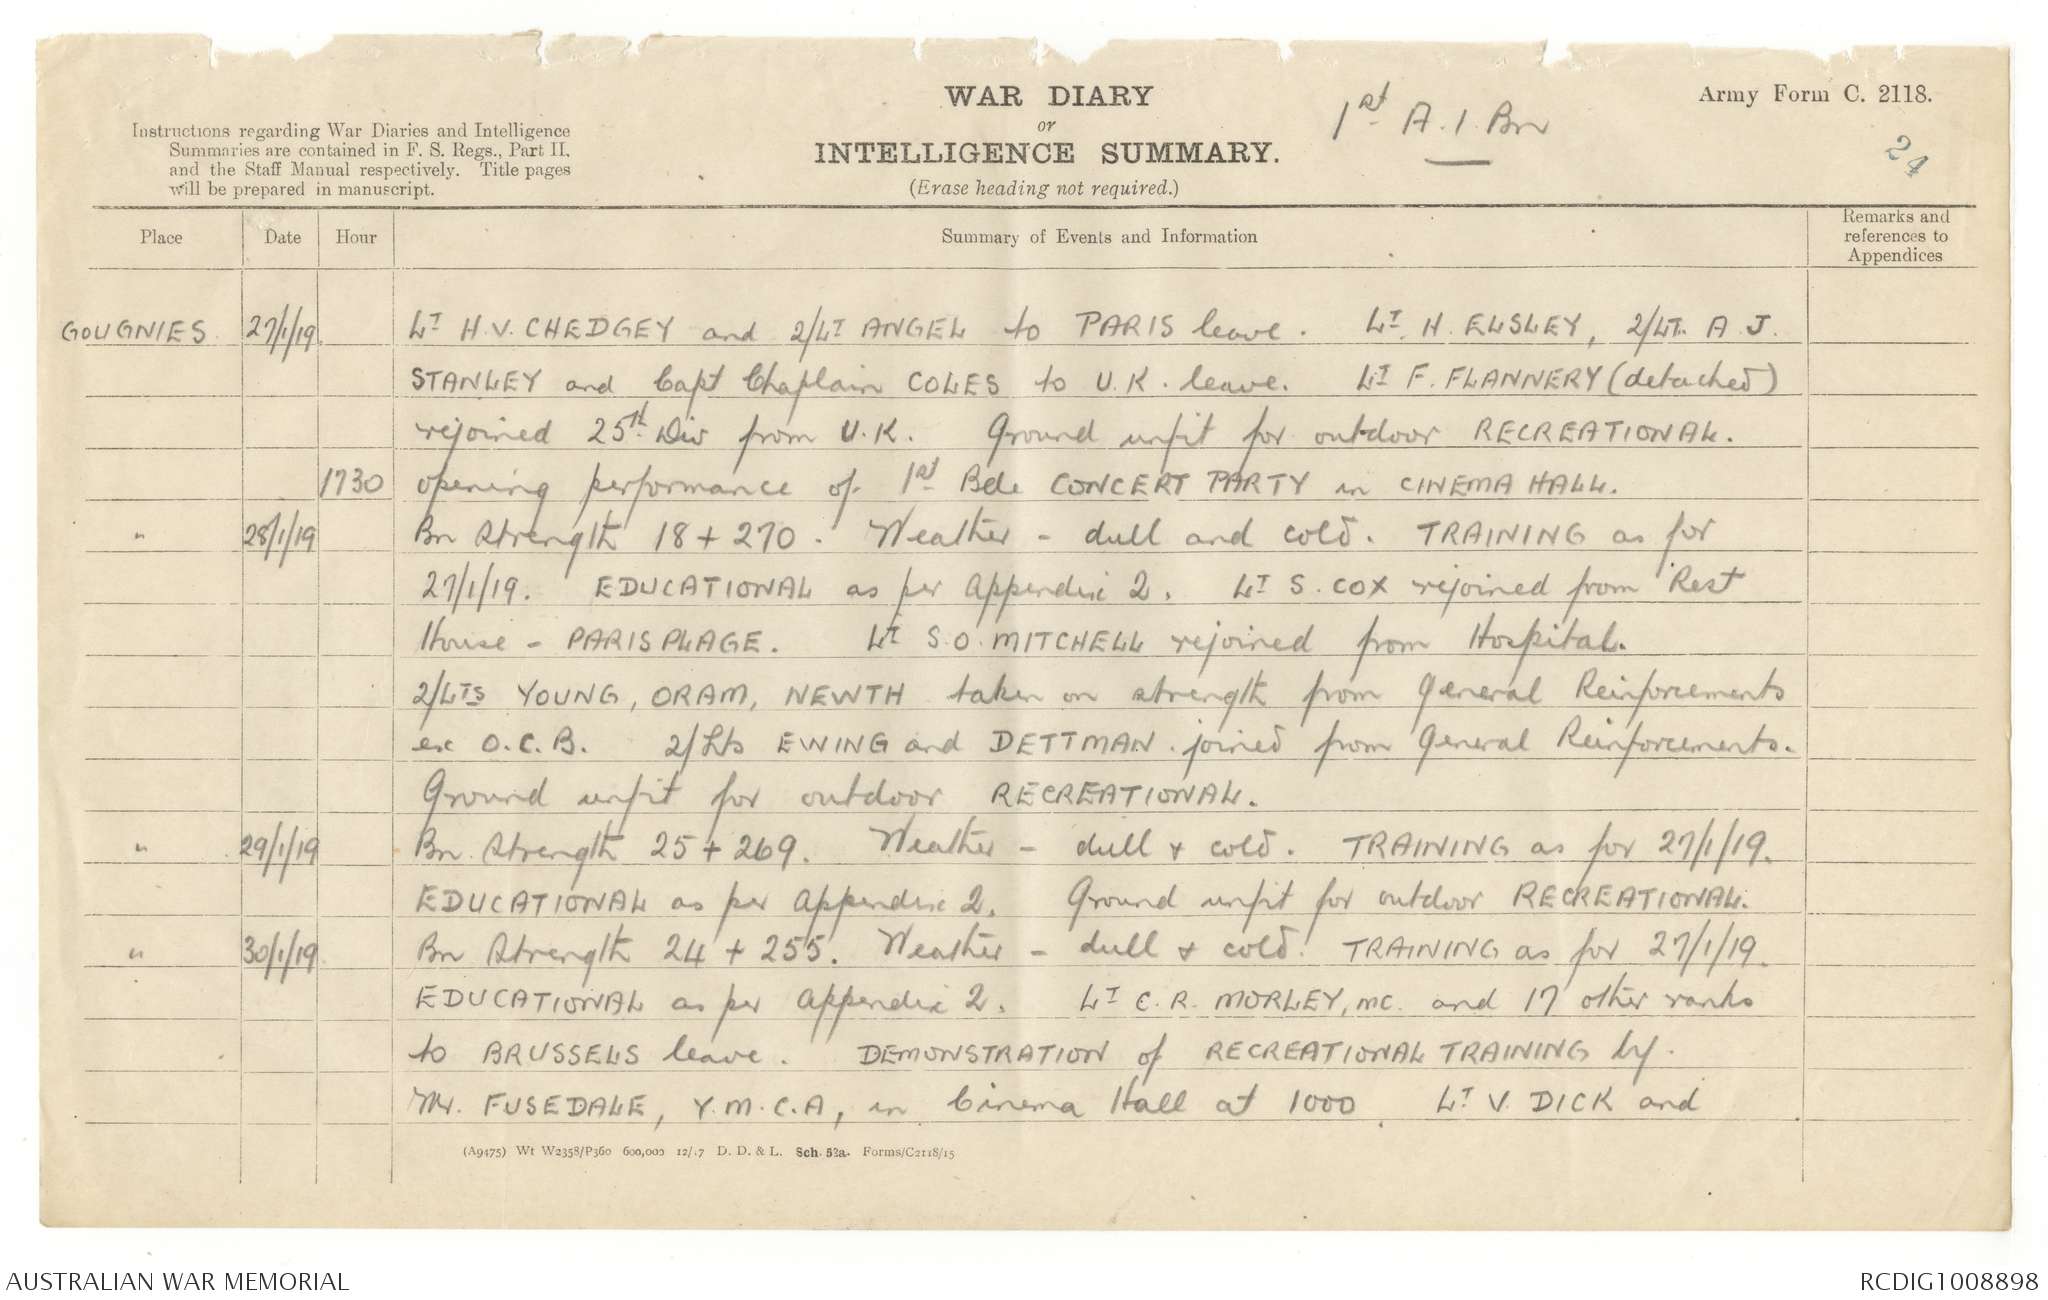 WAR DIARY
or
INTELLIGENCE SUMMARY.
(Erase heading not required.)
1st A.I.Bn
Army Form C. 2118.
24
Instructions regarding War Diaries and Intelligence
Summaries are contained in F. S. Regs., Part II.
and the Staff Manual respectively. Title pages
will be prepared in manuscript.
Place Date Hour Summary of Events and Information Remarks and
references to
Appendices
GOUGNIES 27/1/19 LT H.V. CHEDGEY and 2/LT ANGEL to PARIS leave. LT. H. ELSLEY, 2/LT. A J.
STANLEY and Capt Chaplain COLES to U.K. leave. LT F. FLANNERY (detached)
rejoined 25th Div from U.K. Ground unfit for outdoor RECREATIONAL.
1730 opening performance of 1st Bde CONCERT PARTY in CINEMA HALL.
" 28/1/19 Bn Strength 18 + 270. Weather - dull and cold. TRAINING as for
27/1/19. EDUCATIONAL as per Appendix 2. LT S. COX rejoined from Rest
House - PARIS PLAGE. LT S.O. MITCHELL rejoined from Hospital.
2/LTS YOUNG, ORAM, NEWTH taken on strength from General Reinforcements
ex O.C.B. 2/Lts EWING and DETTMAN joined from General Reinforcements.
Ground unfit for outdoor RECREATIONAL.
" 29/1/19 Bn Strength 25 + 269. Weather - dull & cold. TRAINING as for 27/1/19.
EDUCATIONAL as per Appendix 2. Ground unfit for outdoor RECREATIONAL.
" 30/1/19 Bn Strength 24 + 255. Weather - dull & cold. TRAINING as for 27/1/19.
EDUCATIONAL as per Appendix 2. LT C. R. MORLEY, MC. and 17 other ranks
to BRUSSELS leave. DEMONSTRATION of RECREATIONAL TRAINING by
Mr. FUSEDALE, Y.M.C.A, in Cinema Hall at 1000 LT V. DICK and
(A9475) Wt W2358/P360 600,000 12/17 D. D. & L. Sch. 52a. Forms/C2118/15
AUSTRALIAN WAR MEMORIAL
RCDIG1008898